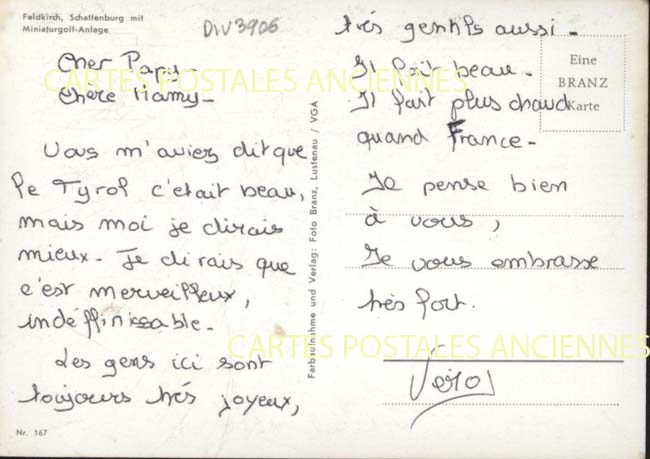 Feldkirch, Schattenburg mit
Miniaturgolf-Anlage
DIV3906
Cher Papy-
Chère Mamy-
Vous m'aviez dit que
le Tyrol c'était beau,
mais moi je dirais
mieux. Je dirais que
c'est merveilleux,
indéffinissable.
Les gens ici sont
toujours très joyeux,
Nr. 167
Farbaufnahme und Verlag: Foto Branz, Lustenau / VGA
très gentils aussi-
Il fait beau-
Il fait plus chaud
quand France-
Je pense bien
à vous,
Je vous embrasse
très fort.
Eine
BRANZ
Karte
CARTES POSTALES ANCIENNES
CARTES POSTALES ANCIENNES